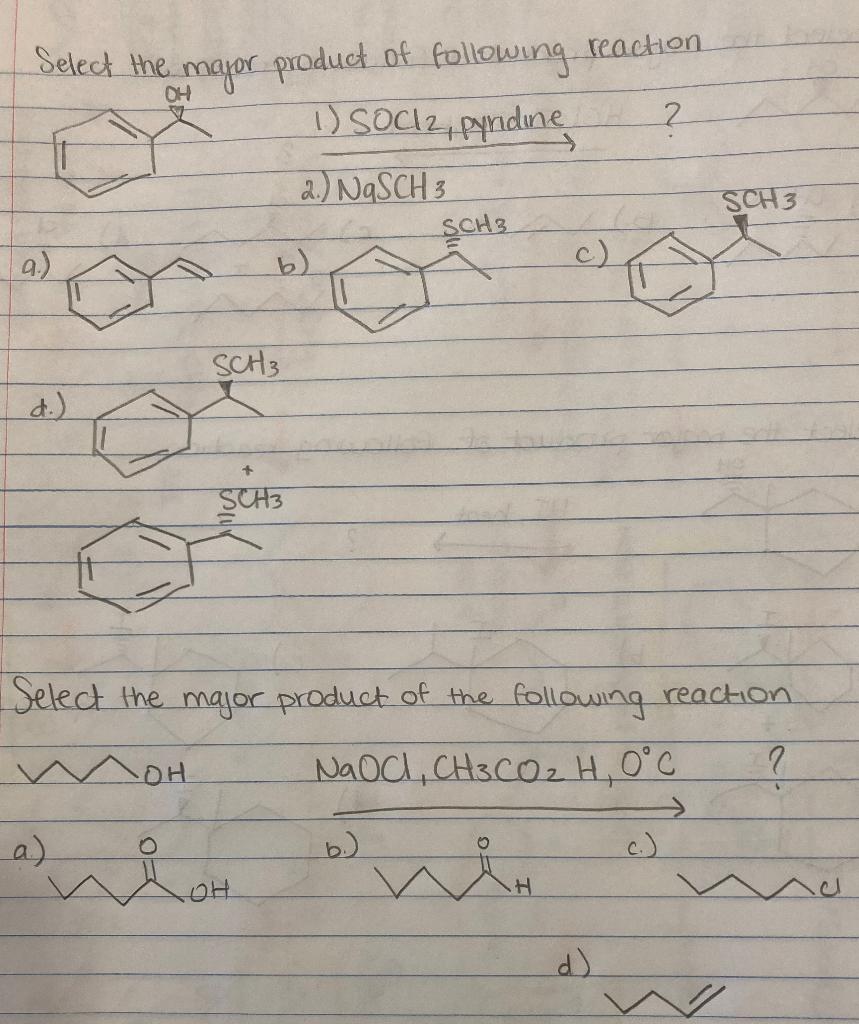 Select the major product of following reaction
OH
1) SOCl2, pyridine ?
2.) NaSCH3
a.) b) SCH3 c) SCH3
d.) SCH3
+
SCH3
Select the major product of the following reaction
OH NaOCl, CH3CO2H, 0°C ?
a.) O OH b.) O H c.) Cl
d)